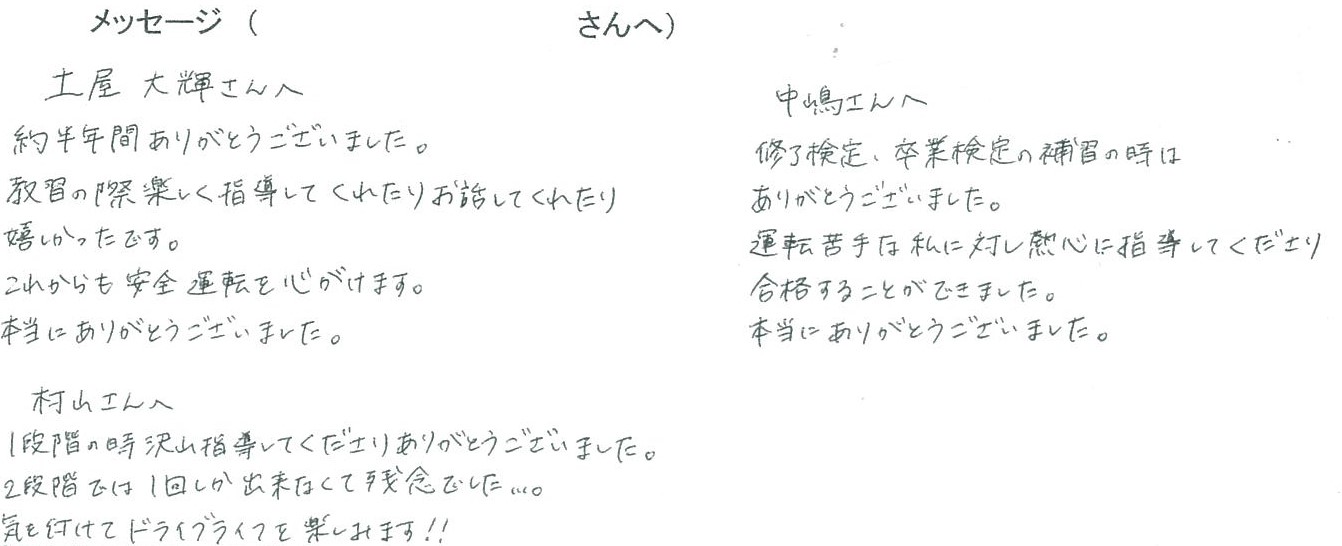 メッセージ（　　　　　　　　　さんへ）
土屋 大輝さんへ
約半年間ありがとうございました。
教習の際楽しく指導してくれたりお話してくれたり
嬉しかったです。
これからも安全運転を心がけます。
本当にありがとうございました。
村山さんへ
1段階の時沢山指導してくださりありがとうございました。
2段階では1回しか出来なくて残念でした…。
気を付けてドライブライフを楽しみます!!
中嶋さんへ
修了検定、卒業検定の補習の時は
ありがとうございました。
運転苦手な私に対し熱心に指導してくださり
合格することができました。
本当にありがとうございました。